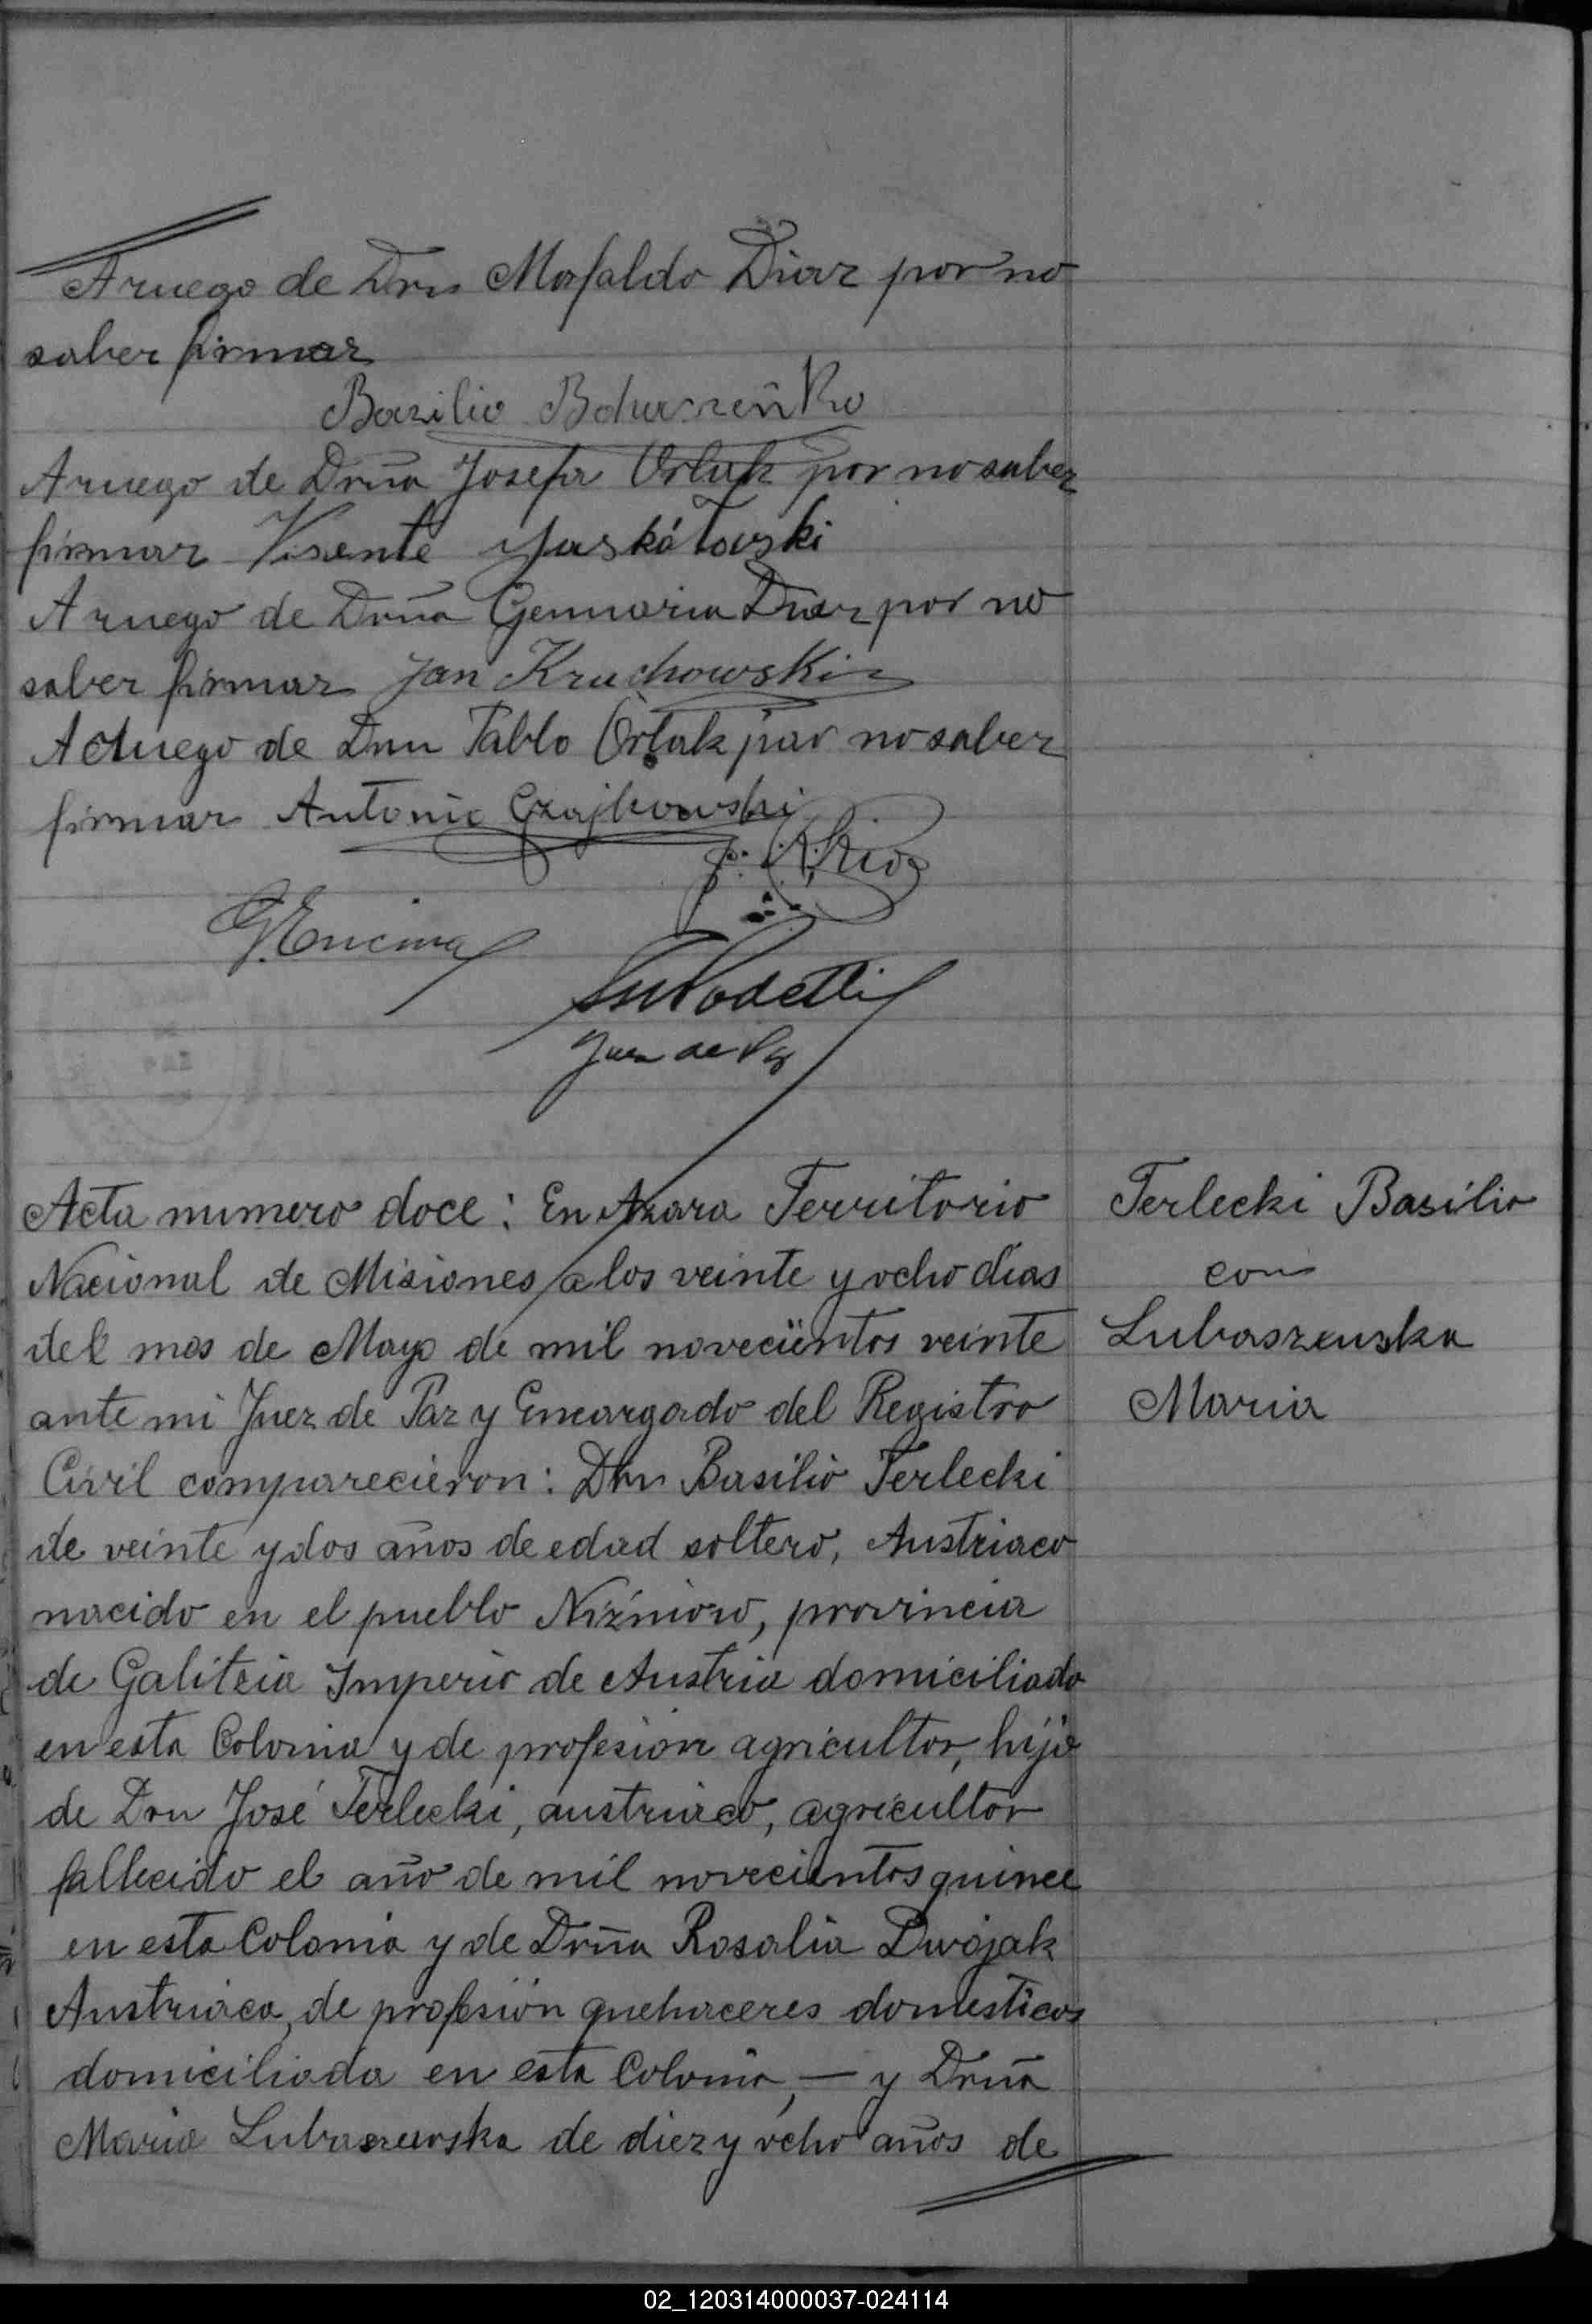 A ruego de Don Mafaldo Diaz por no
saber firmar
Bazilio
A ruego de Doña Josefa Orluk por no saber
firmar Visente
A ruego de Doña Genuaria Diaz por no
saber firmar Jan Kruchowski
A ruego de Don Pablo Orluk por no saber
firmar Antonio Czajkowski
G. Encina
Juez de Paz
Acta numero doce: En Azara Territorio
Nacional de Misiones a los veinte y ocho dias
del mes de Mayo de mil novecientos veinte
ante mi Juez de Paz y Encargado del Registro
Civil comparecieron: Don Basilio Terlecki
de veinte y dos años de edad soltero, Austriaco
nacido en el pueblo Niźniow, provincia
de Galitzia Imperio de Austria domiciliado
en esta Colonia y de profesion agricultor, hijo
de Don José Terlecki, austriaco, agricultor
fallecido el año de mil novecientos quince
en esta Colonia y de Doña Rosalia Dwojak
Austriaca, de profesión quehaceres domesticos
domiciliada en esta Colonia, — y Doña
Maria Lubaszewska de diez y ocho años de
Terlecki Basilio
con
Lubaszewska
Maria
02_120314000037-024114